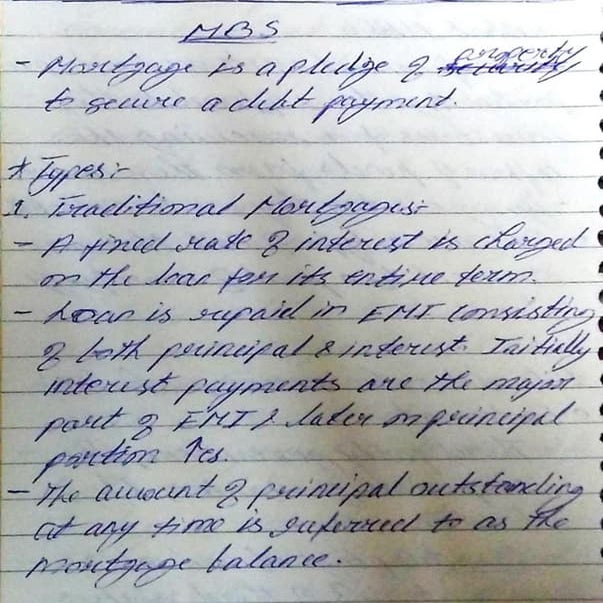 MBS
- Mortgage is a pledge of property
to secure a debt payment.
* Types:-
1. Traditional Mortgages:-
- A fixed rate of interest is charged
on the loan for its entire term.
- Loan is repaid in EMI consisting
of both principal & interest. Initially
interest payments are the major
part of EMI & later on principal
portion ↑es.
- The amount of principal outstanding
at any time is referred to as the
mortgage balance.